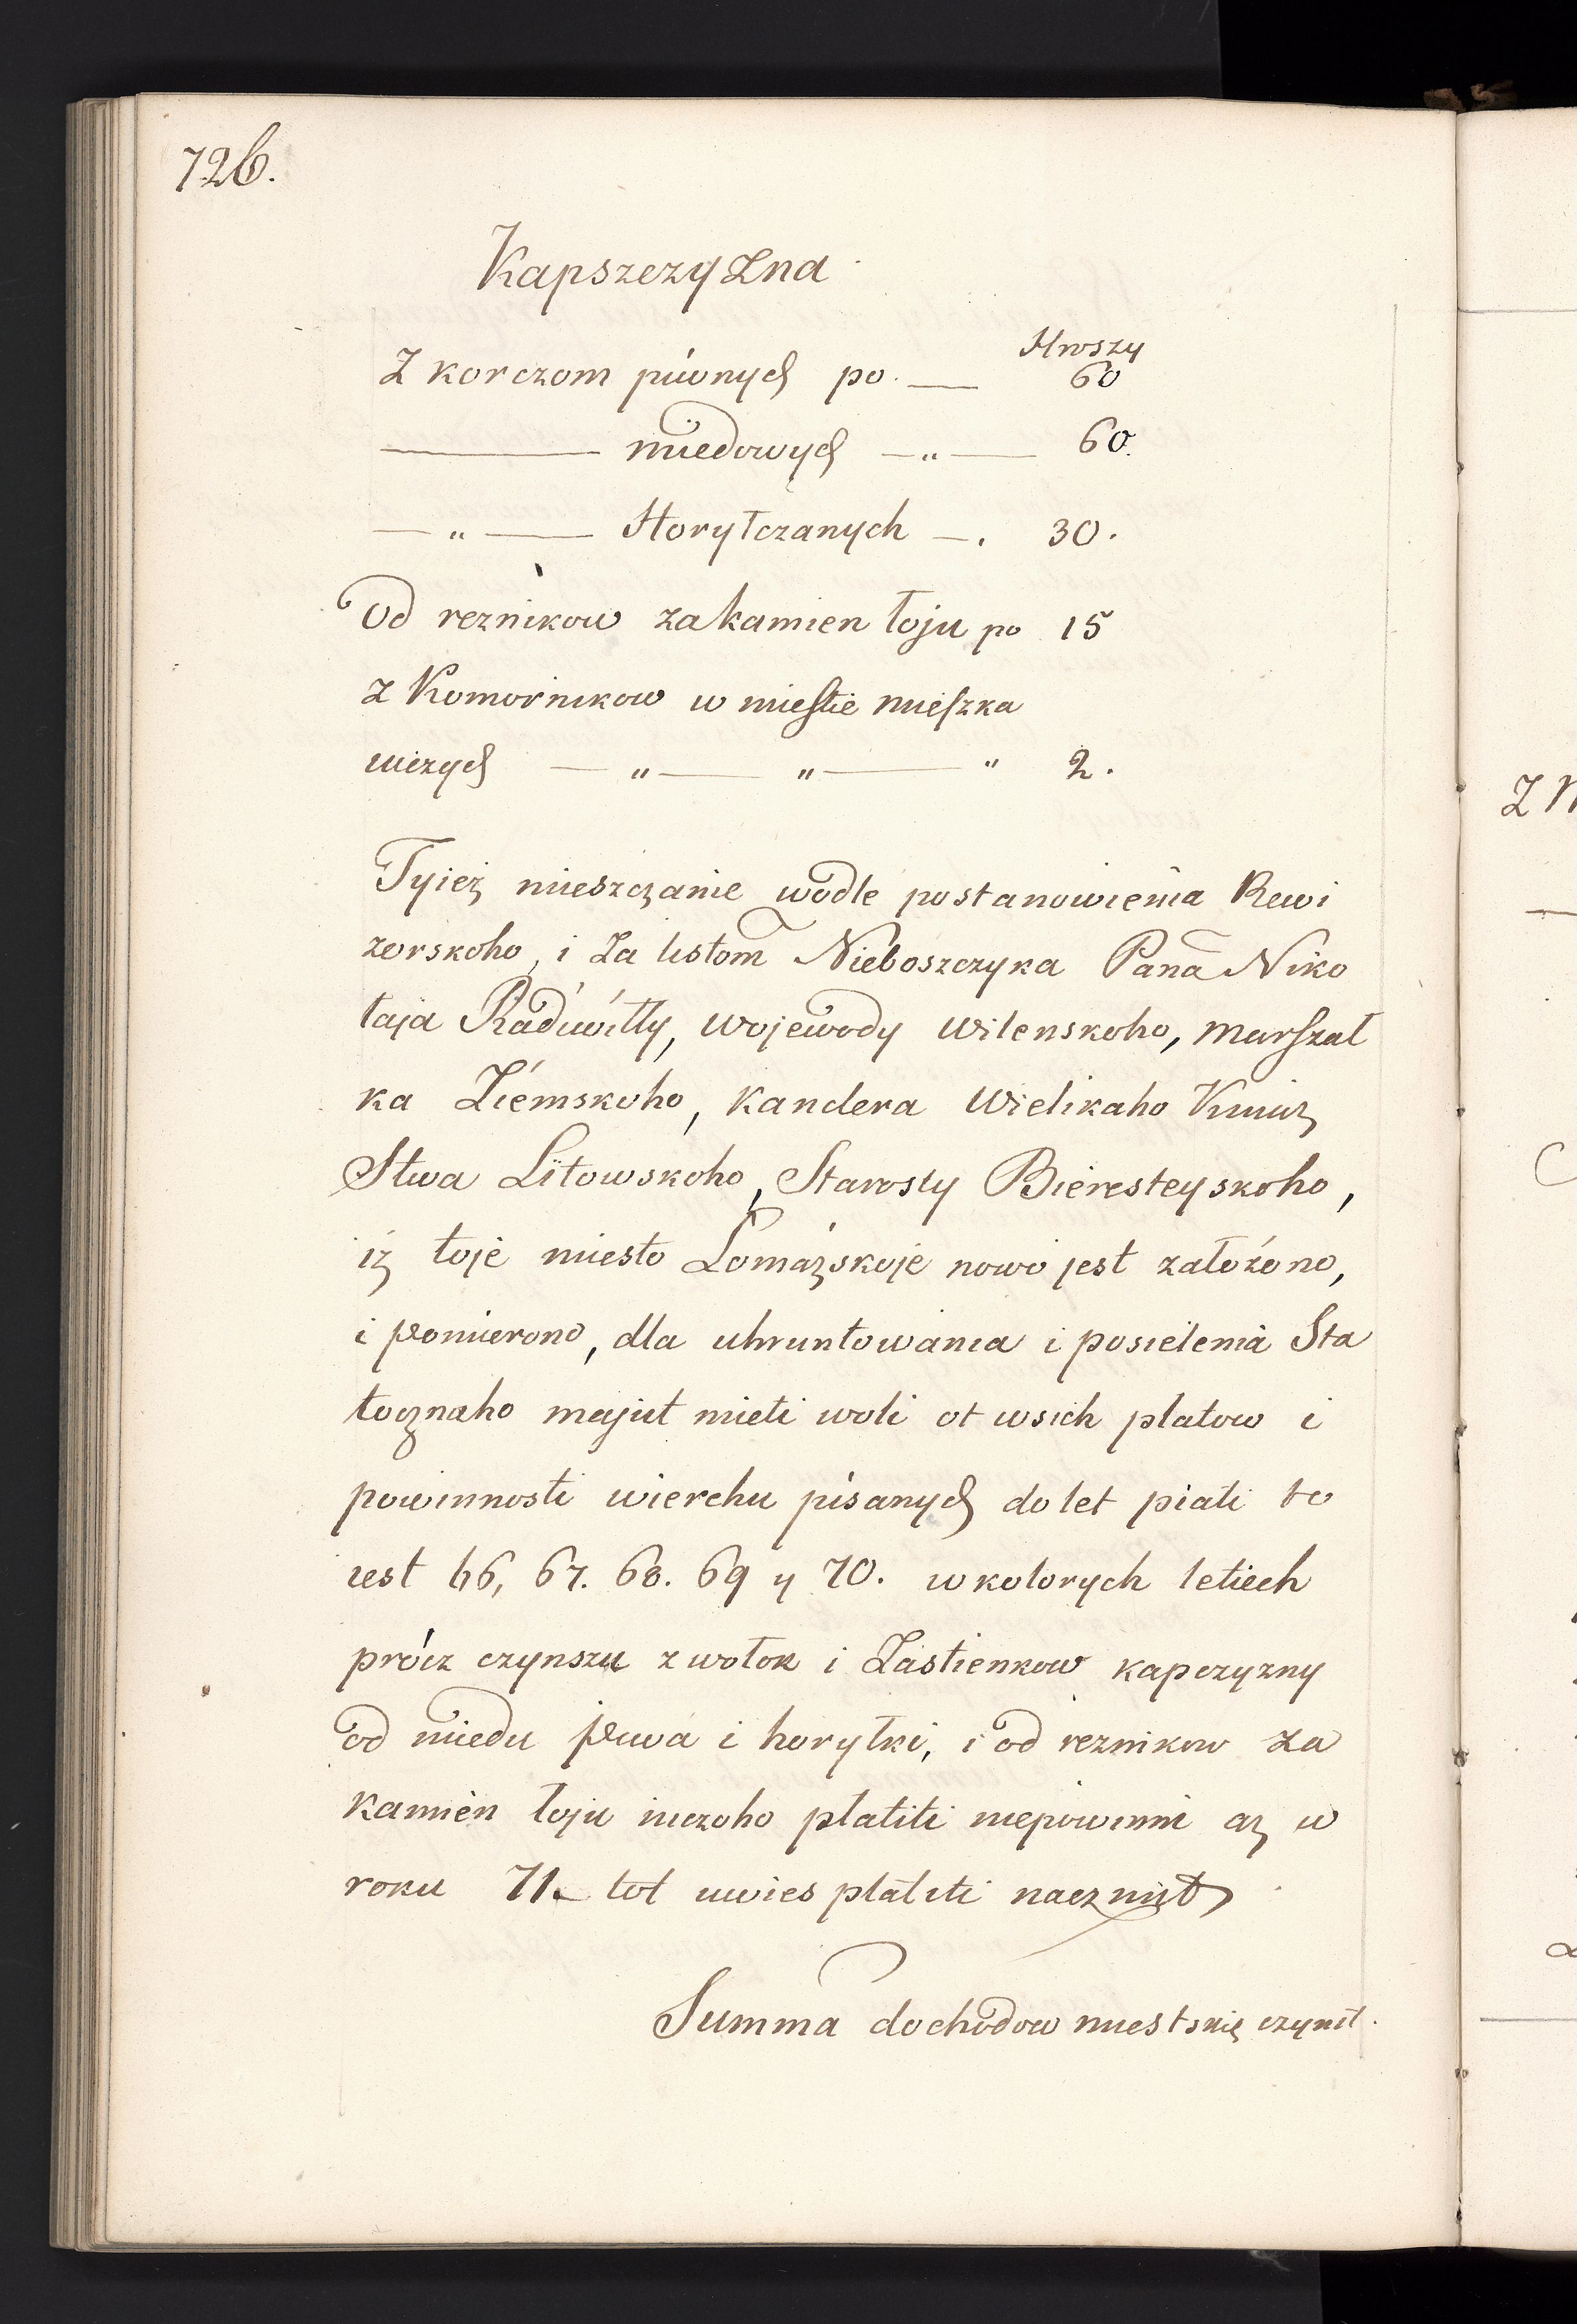 726.
Kapszczyzna
Hroszy
Z korczom piwnych po. — 60
— miedowych —„— 60.
—„— Horyłczanych —. 30.
Od reznikow za kamien łoju po 15
z Komornikow w miestie mieszka
iuczych —„—„—„ 2.
Tyież mieszczanie wodle postanowienia Rewi
zorskoho, i za listom Nieboszczyka Pana Niko
łaja Radiwiłły, Wojewody Wilenskoho, marszał
ka Ziemskoho, Kanclera Wielikaho Kniaz
Stwa Litowskoho, Starosty Bieresteyskoho,
iż toje miesto Łomazskoje nowo jest założono,
i pomierono, dla uhruntowania i posielenia Sta
tocznaho majut mieti woli ot wsich płatow i
powinnosti wierchu pisanych do let piati to
iest 66, 67. 68. 69 y 70. w kotorych letiech
prócz czynszu z wołok i Zastienkow kapczyzny
od miedu piwa i horyłki, i od reznikow za
kamien łoju niczoho płatiti niepowinni aż w
roku 71. tot uwies płatiti nacznut
Summa dochodow miestskię czynit.
Z